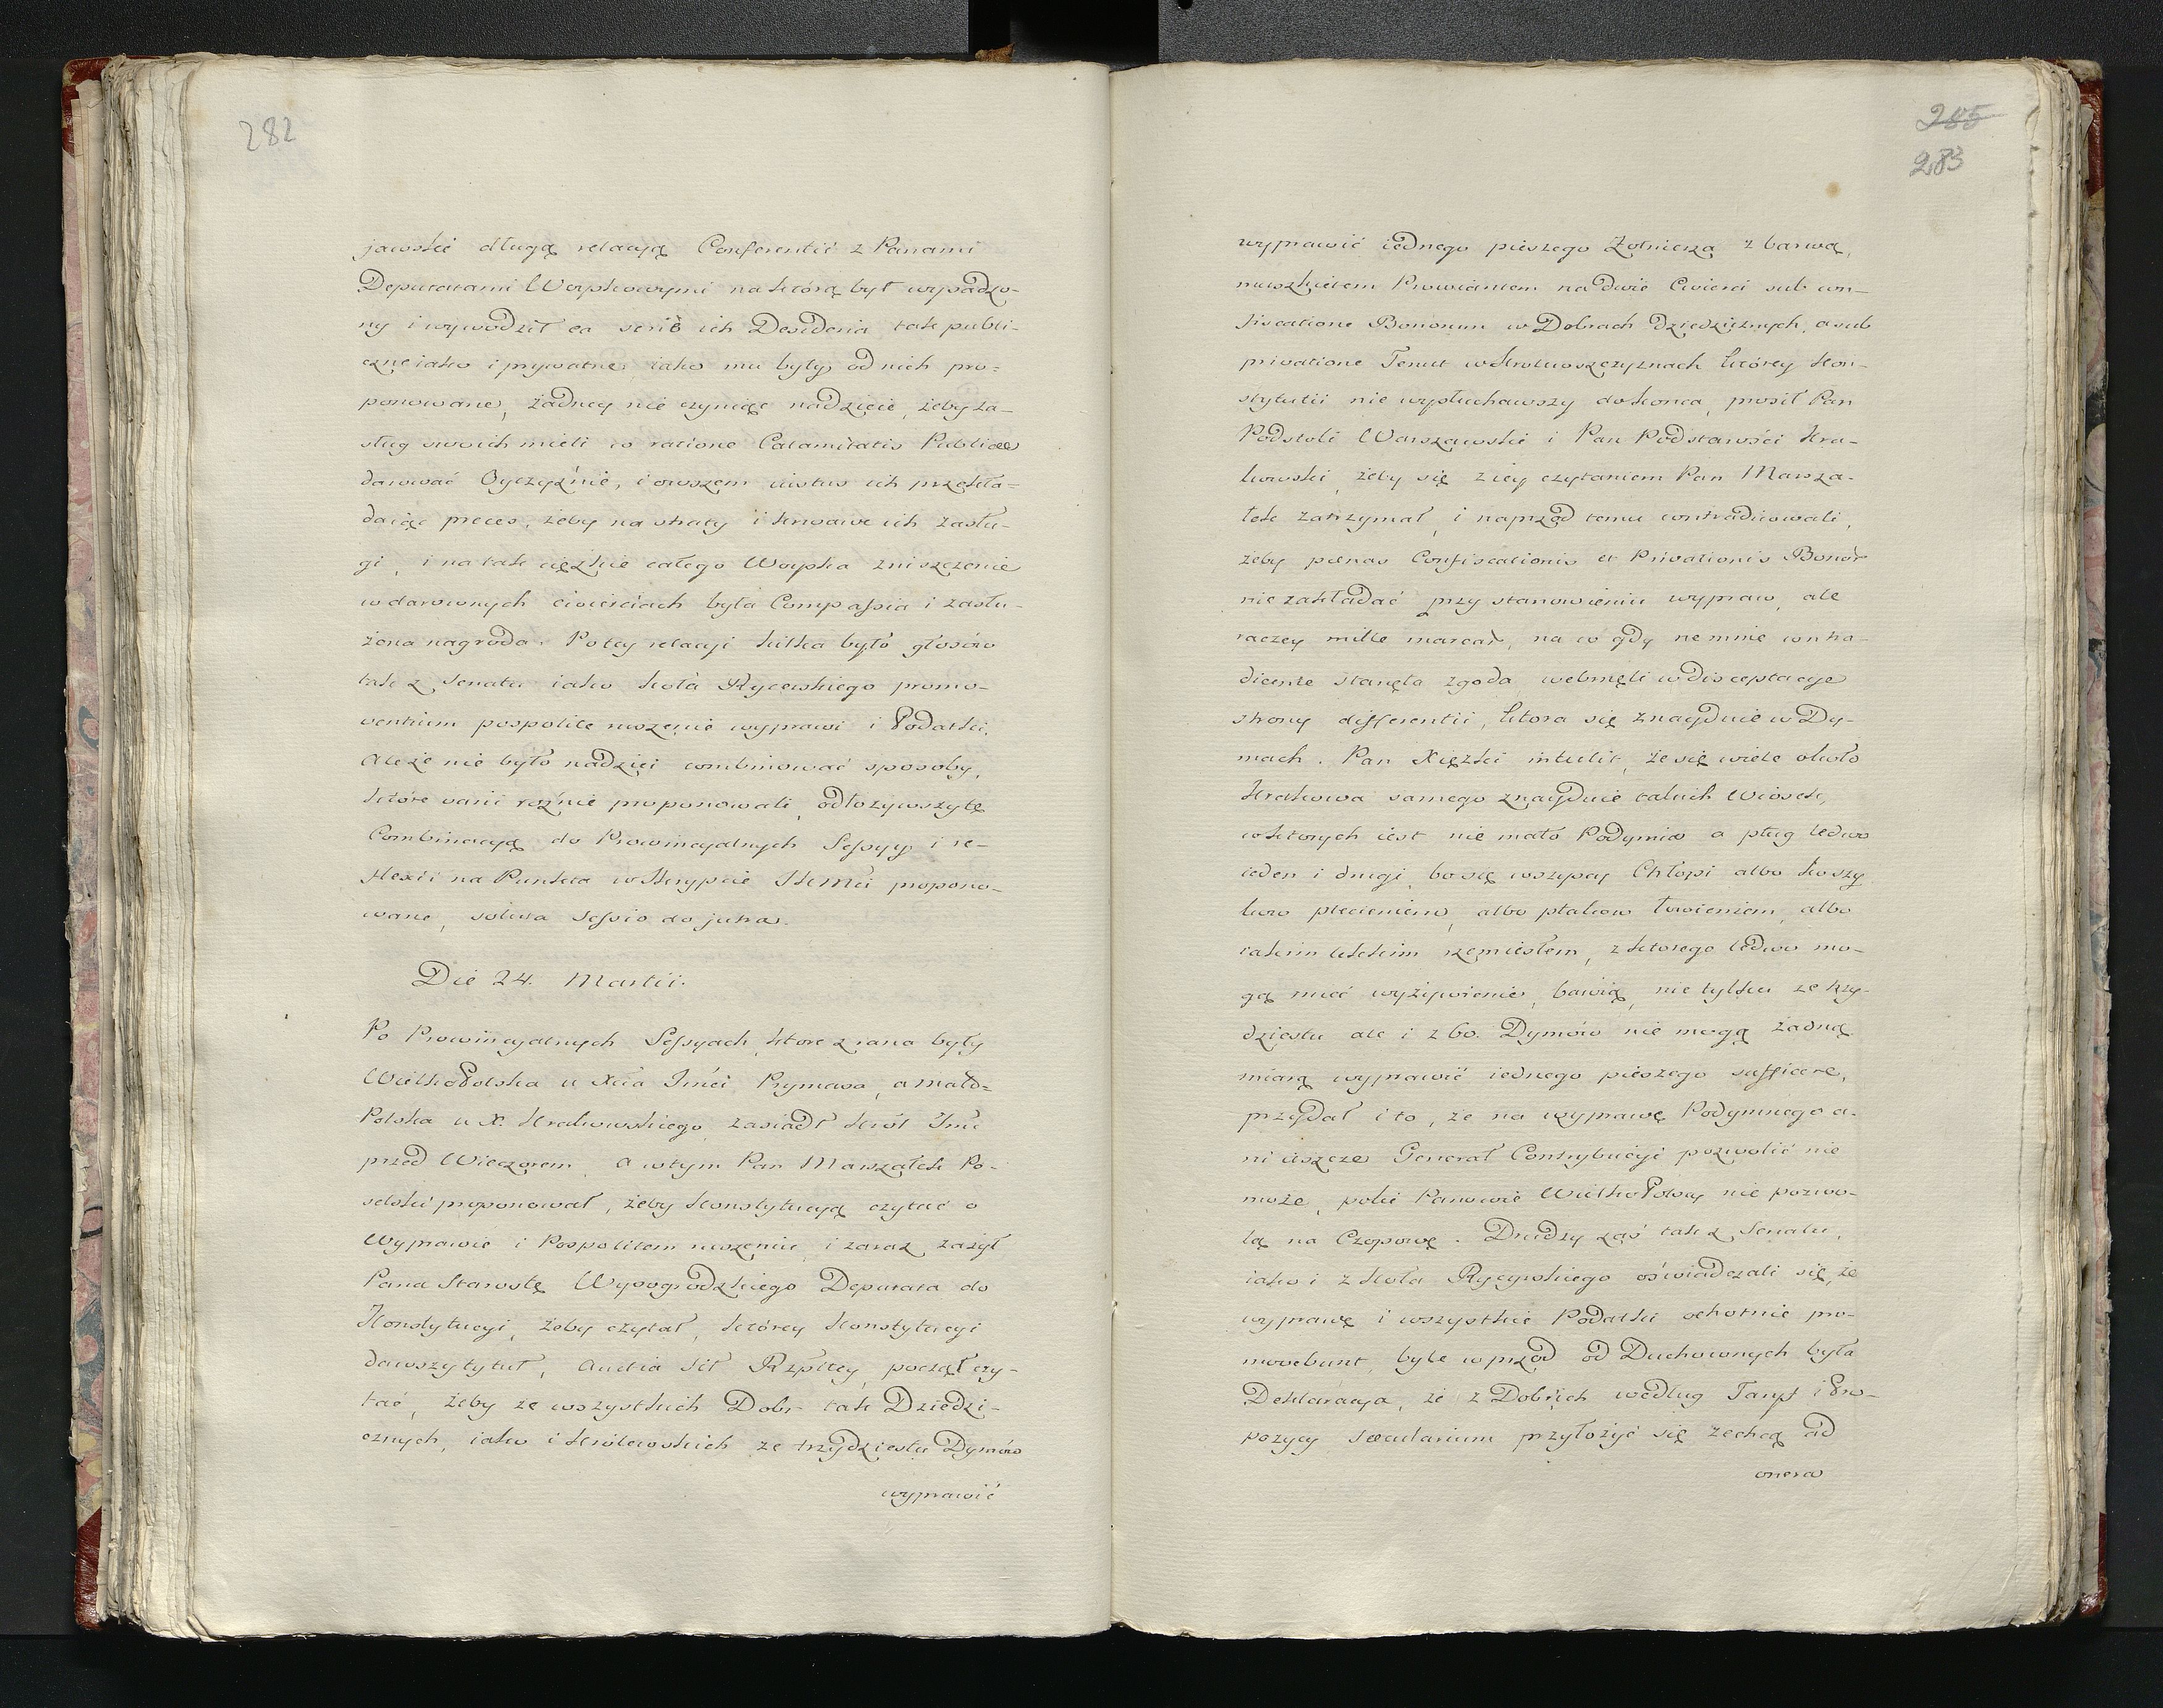 282
jawskie długą relacyą Conferentie z Panami
Deputatami Woyskowymi na którą był wysadzo-
ny i wywodził ea serie ich Desideria tak publi-
czne iako i prywatne, iako mu były od nich pro-
ponowane, żadney nie czyniąc nadzieie, żeby za-
sług swoich mieli in ratione Calamitatis Publicae
darować Oyczyźnie, i owszem iustus ich przekła-
daiąc preces, żeby na straty i krwawe ich zasłu-
gi, i na tak cięzkie całego Woyska zniszczenie
w darownych ćwierciach była Compassia i zasłu-
żona nagroda. Po tey relacyi kilka było głosów
tak z Senatu iako koła Rycerskiego promo-
ventium pospolite ruszenie wyprawi i Podatki.
Ale że nie było nadzieí combinować sposoby,
które varii rożnie proponowali, odłożywszy tę
Combinacyą do Prowincyalnych Sessyy i re-
flexii na Punkta w Skrypcie JKMći propono-
wane, soluta Sessio do jutra.
Die 24. Martii.
Po Prowincyalnych Sessyach, ktore z rana były
WielkoPolska u Xcia Jmći Prymasa, a mało-
Polska u X. Krakowskiego, zasiadł Król Jmć
przed Wieczorem, a wtym Pan Marszałek Po-
selski proponował, żeby Konstytucyą czytać o
Wyprawie i Pospolitem ruszeniu, i zaraz zażył
Pana Starostę Wyszogrodzkiego Deputata do
Konstytucyi, żeby czytał, którey Konstytucyi
dawszy tytuł, Auctia sił Rzpltey, począł czy-
tać, żeby ze wszystkich Dobr tak Dziedzi-
cznych, iako i Królewskich ze trzydziestu Dymów
wyprawić
285
283
wyprawić iednego pieszego Żołnierza z barwą,
muszkietem Prowiantem na dwie Cwierci sub con-
fiscatione Bonorum w Dobrach dziedzicznych, a sub
privatione Tenut w Krolewszczyznach którey Kon-
stytucii nie wysłuchawszy do konca, prosił Pan
Podstoli Warszawski i Pan Podstarości Kra-
kowski, żeby się z iey czytaniem Pan Marsza-
łek zatrzymał, i naprzod temu contradicowali,
żeby paenas Confiscationis et Privationis Bonor
nie zakładać przy stanowieniu wypraw, ale
raczey mille marcar, na co gdy nemine contra-
dicente stanęła zgoda, webrnęli w disceptacye
strony differentii, ktora się znayduie w Dy-
mach. Pan Xięzki intulit, że się wiele około
Krakowa samego znayduie takich Wiosek,
w ktorych iest nie mało Podymia a pług ledwo
ieden i drugi, bo się wszyscy Chłopi albo koszy
kow pleceniem, albo ptakow łowieniem, albo
takim lekkim rzemiesłem, z ktorego ledwo mo-
gą mieć wyżywienie, bawią, nie tylko ze trzy-
dziestu ale i z 60. Dymów nie mogą żadną
miarą wyprawić iednego pieszego sufficere,
przydał i to, że na wyprawę Podymnego a-
ni ieszcze Generał Contrybucyi pozwolić nie
może, poki Panowie WielkoPolscy nie pozwo-
lą na Czopowę. Drudzy zaś tak z Senatu,
iako i z koła Rycerskiego oświadczali się, że
wyprawę i wszystkie Podatki ochotnie pro-
movebunt, byle wprzod od Duchownych była
Deklaracya, że z Dobr ich według Taryf i Pro-
pozycy Secularium przyłożyć się zechcą ad
onera